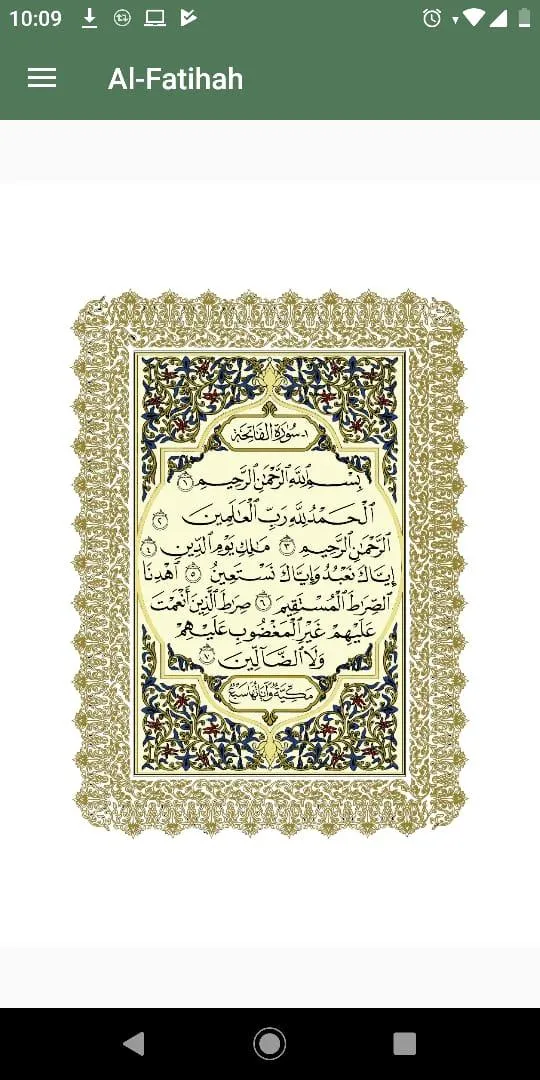 10:09
Al-Fatihah
١-سُورَةُ الفَاتِحَة
بِسْمِ ٱللَّهِ ٱلرَّحْمَٰنِ ٱلرَّحِيمِ ١
ٱلْحَمْدُ لِلَّهِ رَبِّ ٱلْعَالَمِينَ ٢
ٱلرَّحْمَٰنِ ٱلرَّحِيمِ ٣ مَالِكِ يَوْمِ ٱلدِّينِ ٤
إِيَّاكَ نَعْبُدُ وَإِيَّاكَ نَسْتَعِينُ ٥ ٱهْدِنَا
ٱلصِّرَاطَ ٱلْمُسْتَقِيمَ ٦ صِرَاطَ ٱلَّذِينَ أَنْعَمْتَ
عَلَيْهِمْ غَيْرِ ٱلْمَغْضُوبِ عَلَيْهِمْ
وَلَا ٱلضَّآلِّينَ ٧
مَكِّيَّة وَآيَاتُهَا سَبْعٌ